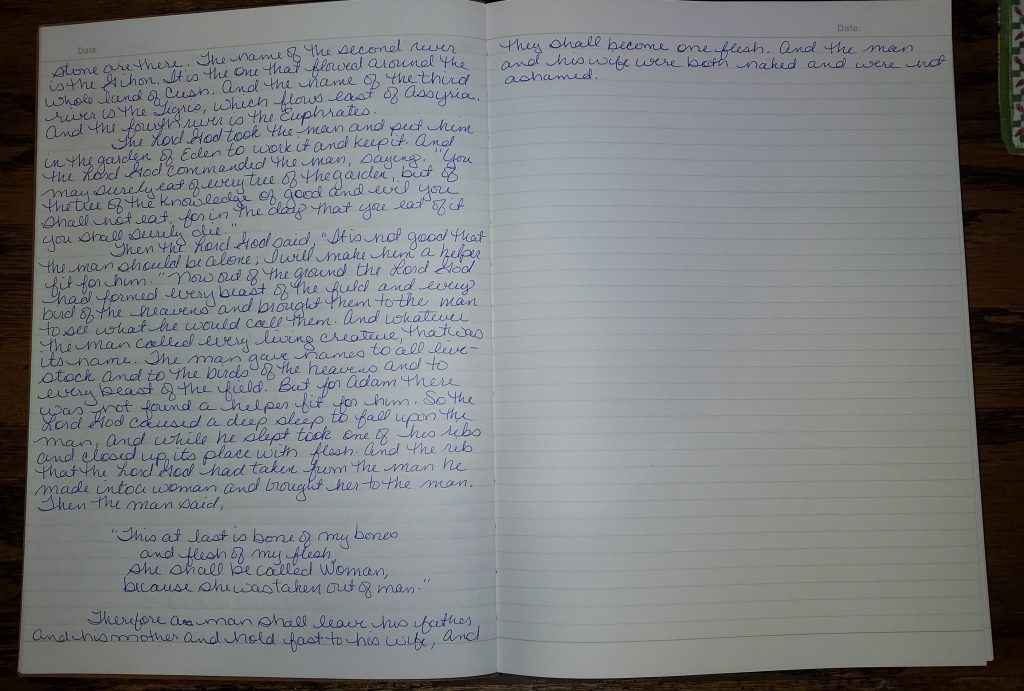 Date:
stone are there. The name of the second river
is the Gihon. It is the one that flowed around the
whole land of Cush. And the name of the third
river is the Tigris, which flows east of Assyria.
And the fourth river is the Euphrates.
The Lord God took the man and put him
in the garden of Eden to work it and keep it. And
the Lord God commanded the man, saying, "You
may surely eat of every tree of the garden, but of
the tree of the knowledge of good and evil you
shall not eat, for in the day that you eat of it
you shall surely die."
Then the Lord God said, "It is not good that
the man should be alone; I will make him a helper
fit for him." Now out of the ground the Lord God
had formed every beast of the field and every
bird of the heavens and brought them to the man
to see what he would call them. And whatever
the man called every living creature, that was
its name. The man gave names to all live-
stock and to the birds of the heavens and to
every beast of the field. But for Adam there
was not found a helper fit for him. So the
Lord God caused a deep sleep to fall upon the
man, and while he slept took one of his ribs
and closed up its place with flesh. And the rib
that the Lord God had taken from the man he
made into a woman and brought her to the man.
Then the man said,
"This at last is bone of my bones
and flesh of my flesh;
she shall be called Woman,
because she was taken out of man."
Therefore a man shall leave his father
and his mother and hold fast to his wife, and
Date:
they shall become one flesh. And the man
and his wife were both naked and were not
ashamed.